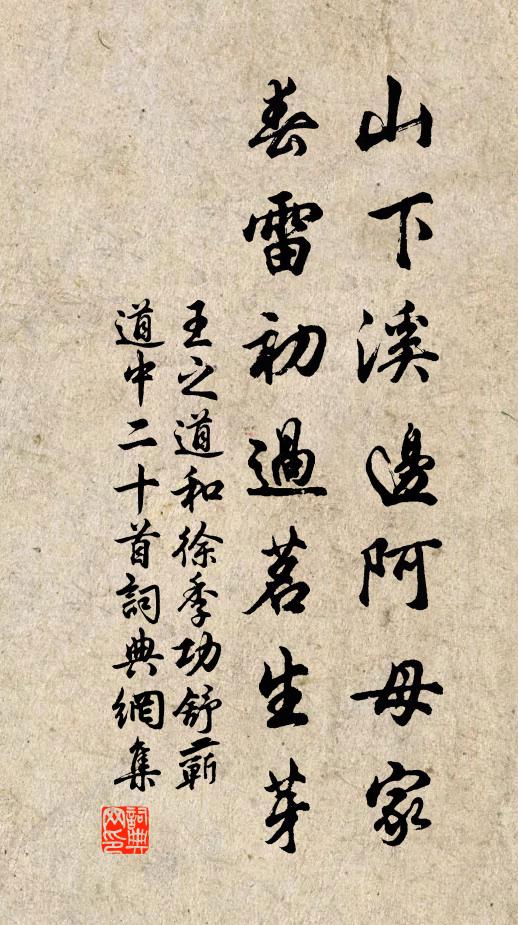 山下溪邊阿母家
春雷初過茗生芽
王之道和徐季功舒蘄
道中二十首詞典網集
詞典
网印